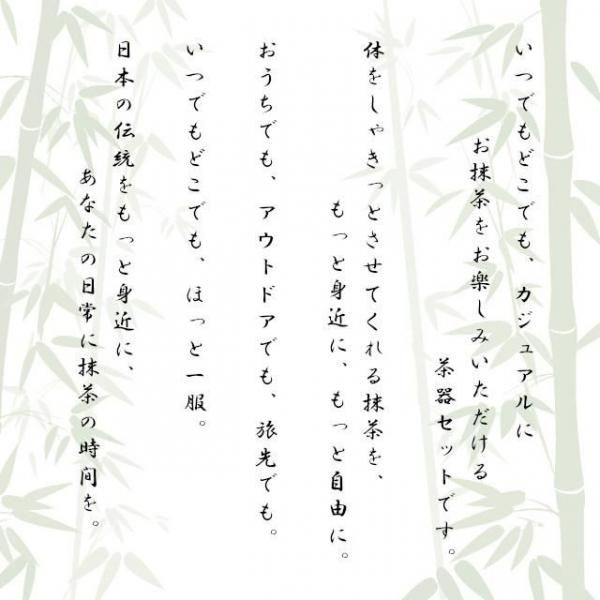 いつでもどこでも、カジュアルに
お抹茶をお楽しみいただける
茶器セットです。
体をしゃきっとさせてくれる抹茶を、
もっと身近に、もっと自由に。
おうちでも、アウトドアでも、旅先でも。
いつでもどこでも、ほっと一服。
日本の伝統をもっと身近に、
あなたの日常に抹茶の時間を。